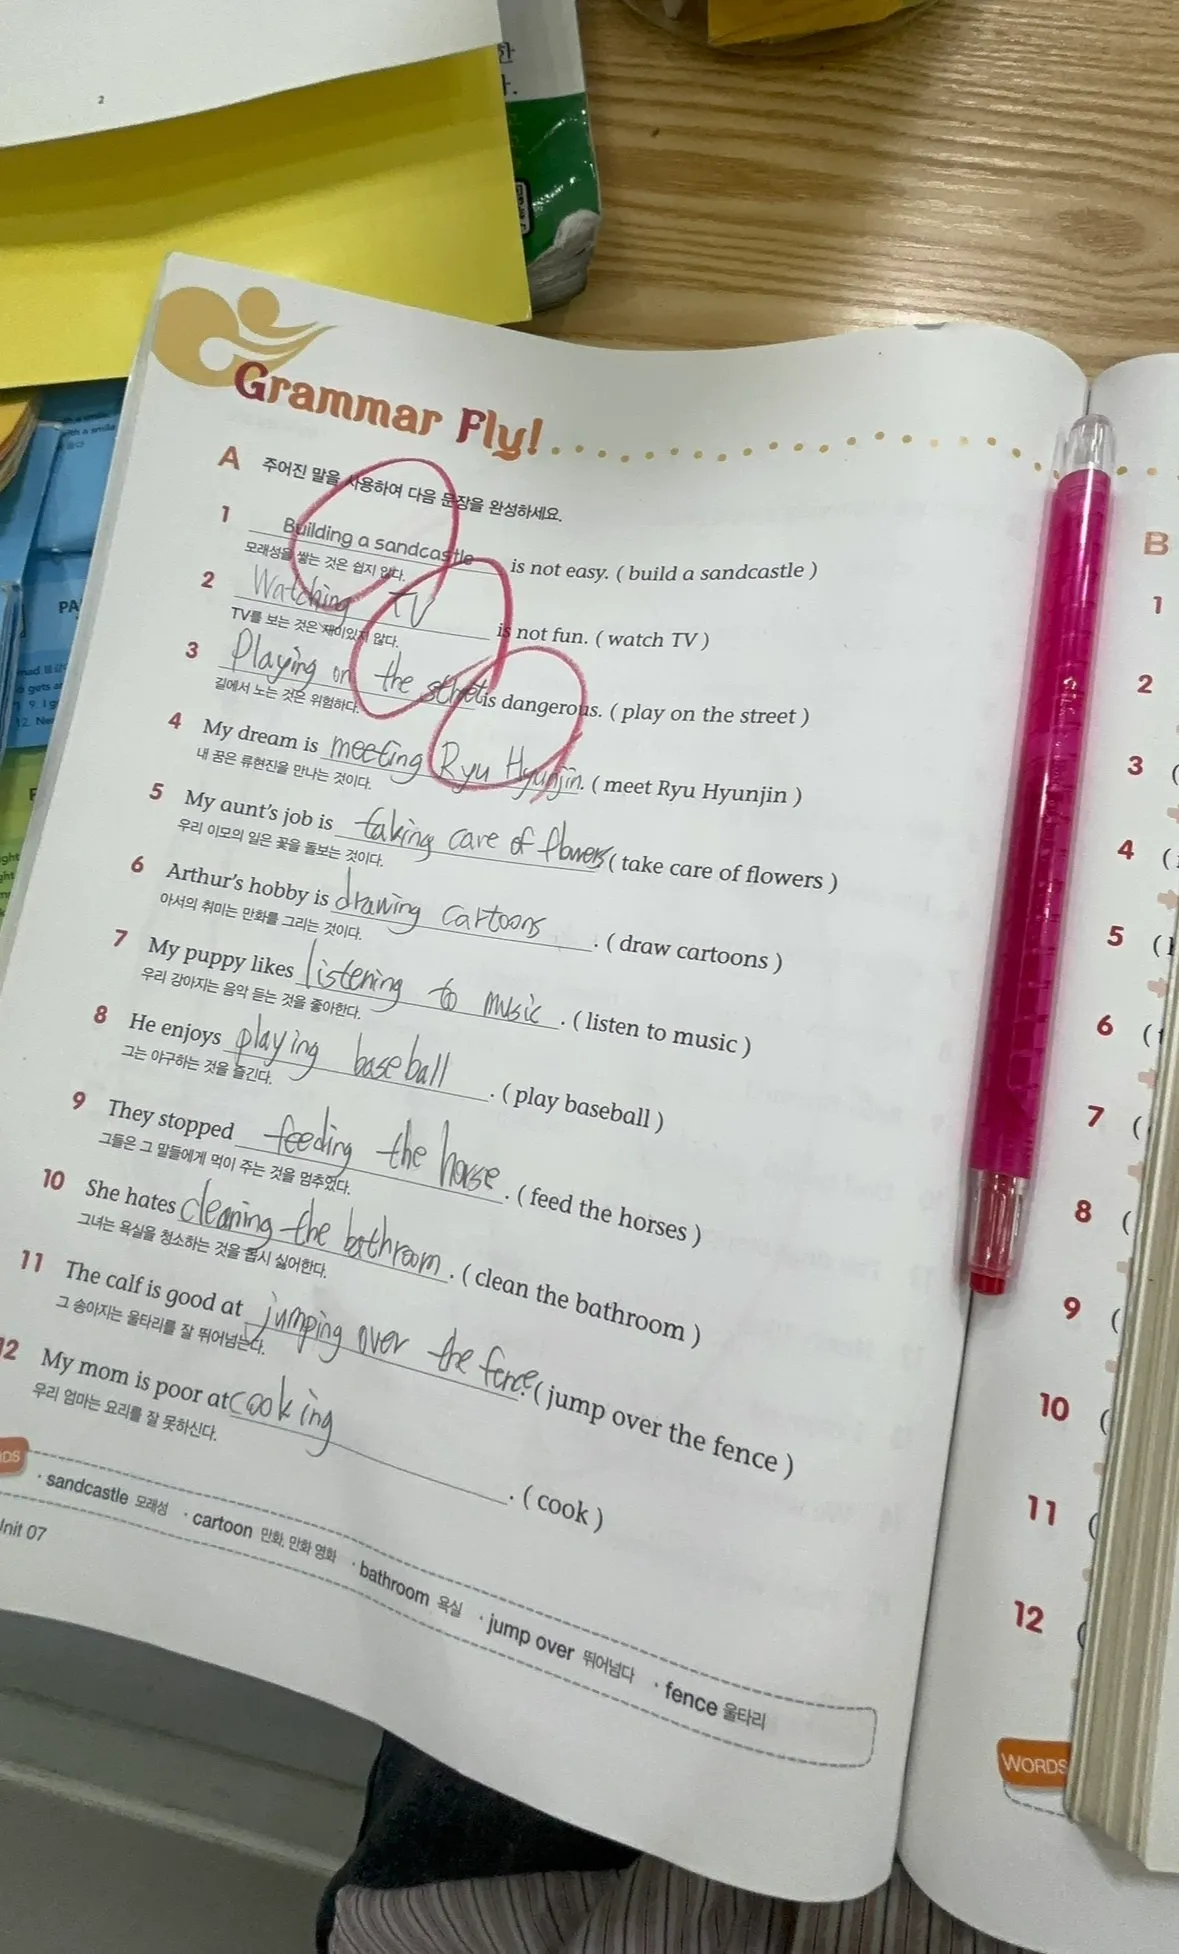 2
Grammar Fly!
A 주어진 말을 사용하여 다음 문장을 완성하세요.
1 Building a sandcastle is not easy. ( build a sandcastle )
모래성을 쌓는 것은 쉽지 않다.
2 Watching TV is not fun. ( watch TV )
TV를 보는 것은 재미있지 않다.
3 Playing on the street is dangerous. ( play on the street )
길에서 노는 것은 위험하다.
4 My dream is meeting Ryu Hyunjin. ( meet Ryu Hyunjin )
내 꿈은 류현진을 만나는 것이다.
5 My aunt's job is taking care of flowers ( take care of flowers )
우리 이모의 일은 꽃을 돌보는 것이다.
6 Arthur's hobby is drawing cartoons . ( draw cartoons )
아서의 취미는 만화를 그리는 것이다.
7 My puppy likes listening to music . ( listen to music )
우리 강아지는 음악 듣는 것을 좋아한다.
8 He enjoys playing baseball . ( play baseball )
그는 야구하는 것을 즐긴다.
9 They stopped feeding the horse . ( feed the horses )
그들은 그 말들에게 먹이 주는 것을 멈추었다.
10 She hates cleaning the bathroom . ( clean the bathroom )
그녀는 욕실을 청소하는 것을 몹시 싫어한다.
11 The calf is good at jumping over the fence. ( jump over the fence )
그 송아지는 울타리를 잘 뛰어넘는다.
12 My mom is poor at cooking . ( cook )
우리 엄마는 요리를 잘 못하신다.
· sandcastle 모래성 · cartoon 만화, 만화 영화 · bathroom 욕실 · jump over 뛰어넘다 · fence 울타리
Unit 07
B
1
2
3 (
4 (
5 (
6 (
7 (
8 (
9 (
10 (
11 (
12 (
WORDS